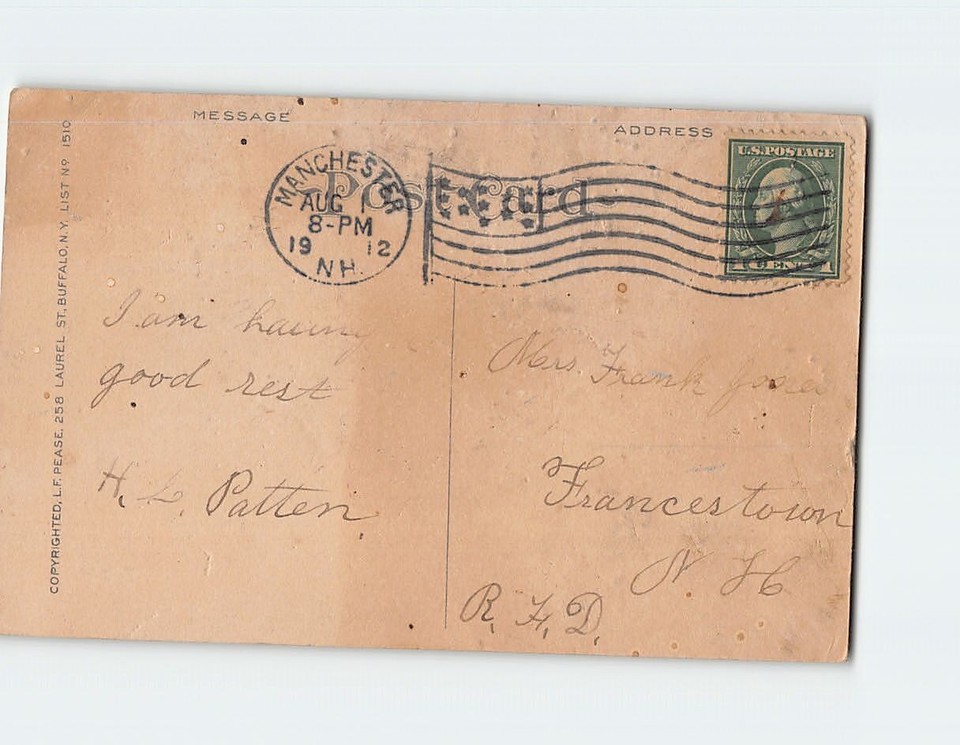 MESSAGE
ADDRESS
Post Card
MANCHESTER
AUG 1
8-PM
19 12
N.H.
U.S. POSTAGE
1 CENT 1
I am having
good rest
H. L. Patten
Mrs. Frank
Francestown
N H
R. F. D.
COPYRIGHTED, L.F. PEASE, 258 LAUREL ST. BUFFALO, N.Y. LIST No 1510